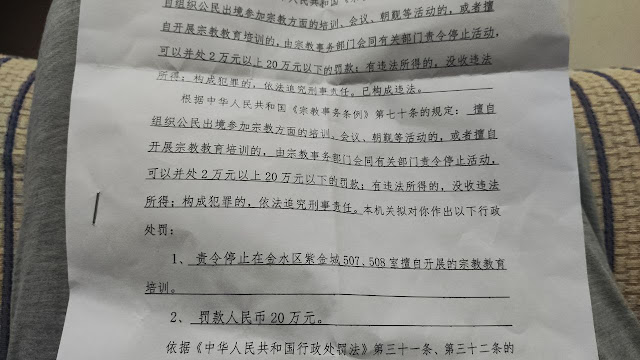 民共和国《
自组织公民出境参加宗教方面的培训、会议、朝觐等活动的，或者擅
自开展宗教教育培训的，由宗教事务部门会同有关部门责令停止活动，
可以并处2万元以上20万元以下的罚款；有违法所得的，没收违法
所得；构成犯罪的，依法追究刑事责任。已构成违法。
根据中华人民共和国《宗教事务条例》第七十条的规定：擅自
组织公民出境参加宗教方面的培训、会议、朝觐等活动的，或者擅自
开展宗教教育培训的，由宗教事务部门会同有关部门责令停止活动，
可以并处2万元以上20万元以下的罚款；有违法所得的，没收违法
所得；构成犯罪的，依法追究刑事责任。本机关拟对你作出以下行政
处罚：
1、责令停止在金水区紫金城507、508室擅自开展的宗教教育
培训。
2、罚款人民币20万元。
依据《中华人民共和国行政处罚法》第三十一条、第三十二条的